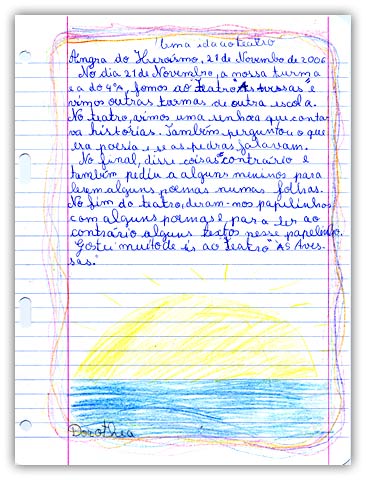 Uma ida ao teatro
Angra do Heroísmo, 21 de Novembo de 2006
No dia 21 de Novembro, a nossa turma
e a do 4ºA, fomos ao teatro "Ás avessas" e
vimos outras turmas de outra escola.
No teatro, vimos uma senhora que conta-
va histórias. Também perguntou o que
era poesia e se as pedras falavam.
No final, disse coisas ao contrário e
também pediu a alguns meninos para
lerem alguns poemas numas folhas.
No fim do teatro, deram-nos papelinhos
com alguns poemas e para ler ao
contrário alguns textos nesse papelinho.
Gostei muito de ir ao teatro "Ás Aves-
sas."
Dorothea